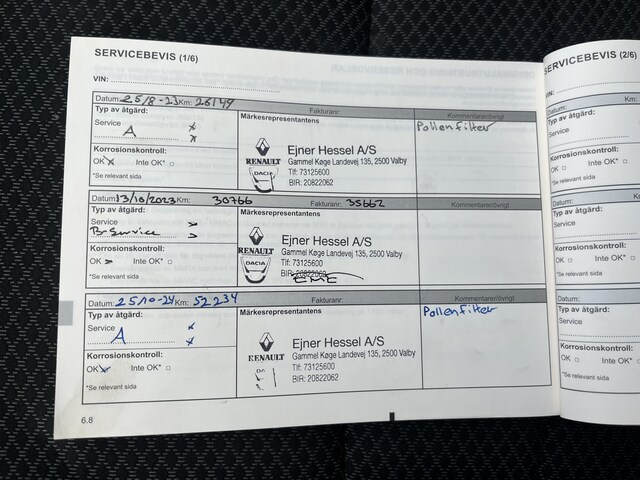 SERVICEBEVIS (1/6)
VIN:
Datum: 25/8-23 Km: 26149 Fakturanr:
Typ av åtgärd:
Service
A
Korrosionskontroll:
OK Inte OK*
*Se relevant sida
Märkesrepresentantens
RENAULT
DACIA
Ejner Hessel A/S
Gammel Køge Landevej 135, 2500 Valby
Tlf: 73125600
BIR: 20822062
Kommentarer/övrigt
Pollenfilter
Datum: 13/10/2023 Km: 30766 Fakturanr: 35662
Typ av åtgärd:
Service
B-Service
Korrosionskontroll:
OK Inte OK*
*Se relevant sida
Märkesrepresentantens
RENAULT
DACIA
Ejner Hessel A/S
Gammel Køge Landevej 135, 2500 Valby
Tlf: 73125600
BIR: 20822062
EME
Kommentarer/övrigt
Datum: 25/10-24 Km: 52234 Fakturanr:
Typ av åtgärd:
Service
A
Korrosionskontroll:
OK Inte OK*
*Se relevant sida
Märkesrepresentantens
RENAULT
Ejner Hessel A/S
Gammel Køge Landevej 135, 2500 Valby
Tlf: 73125600
BIR: 20822062
Kommentarer/övrigt
Pollenfilter
6.8
SERVICEBEVIS (2/6)
VIN:
Datum: Km:
Typ av åtgärd:
Service
Korrosionskontroll:
OK Inte OK*
*Se relevant sida
Datum: Km:
Typ av åtgärd:
Service
Korrosionskontroll:
OK Inte OK*
*Se relevant sida
Datum: Km:
Typ av åtgärd:
Service
Korrosionskontroll:
OK Inte OK*
*Se relevant sida